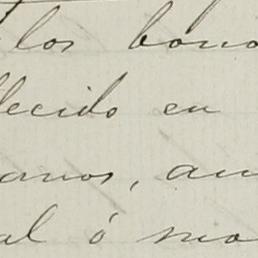 los bono
lecido en
anos, au
al ó mo